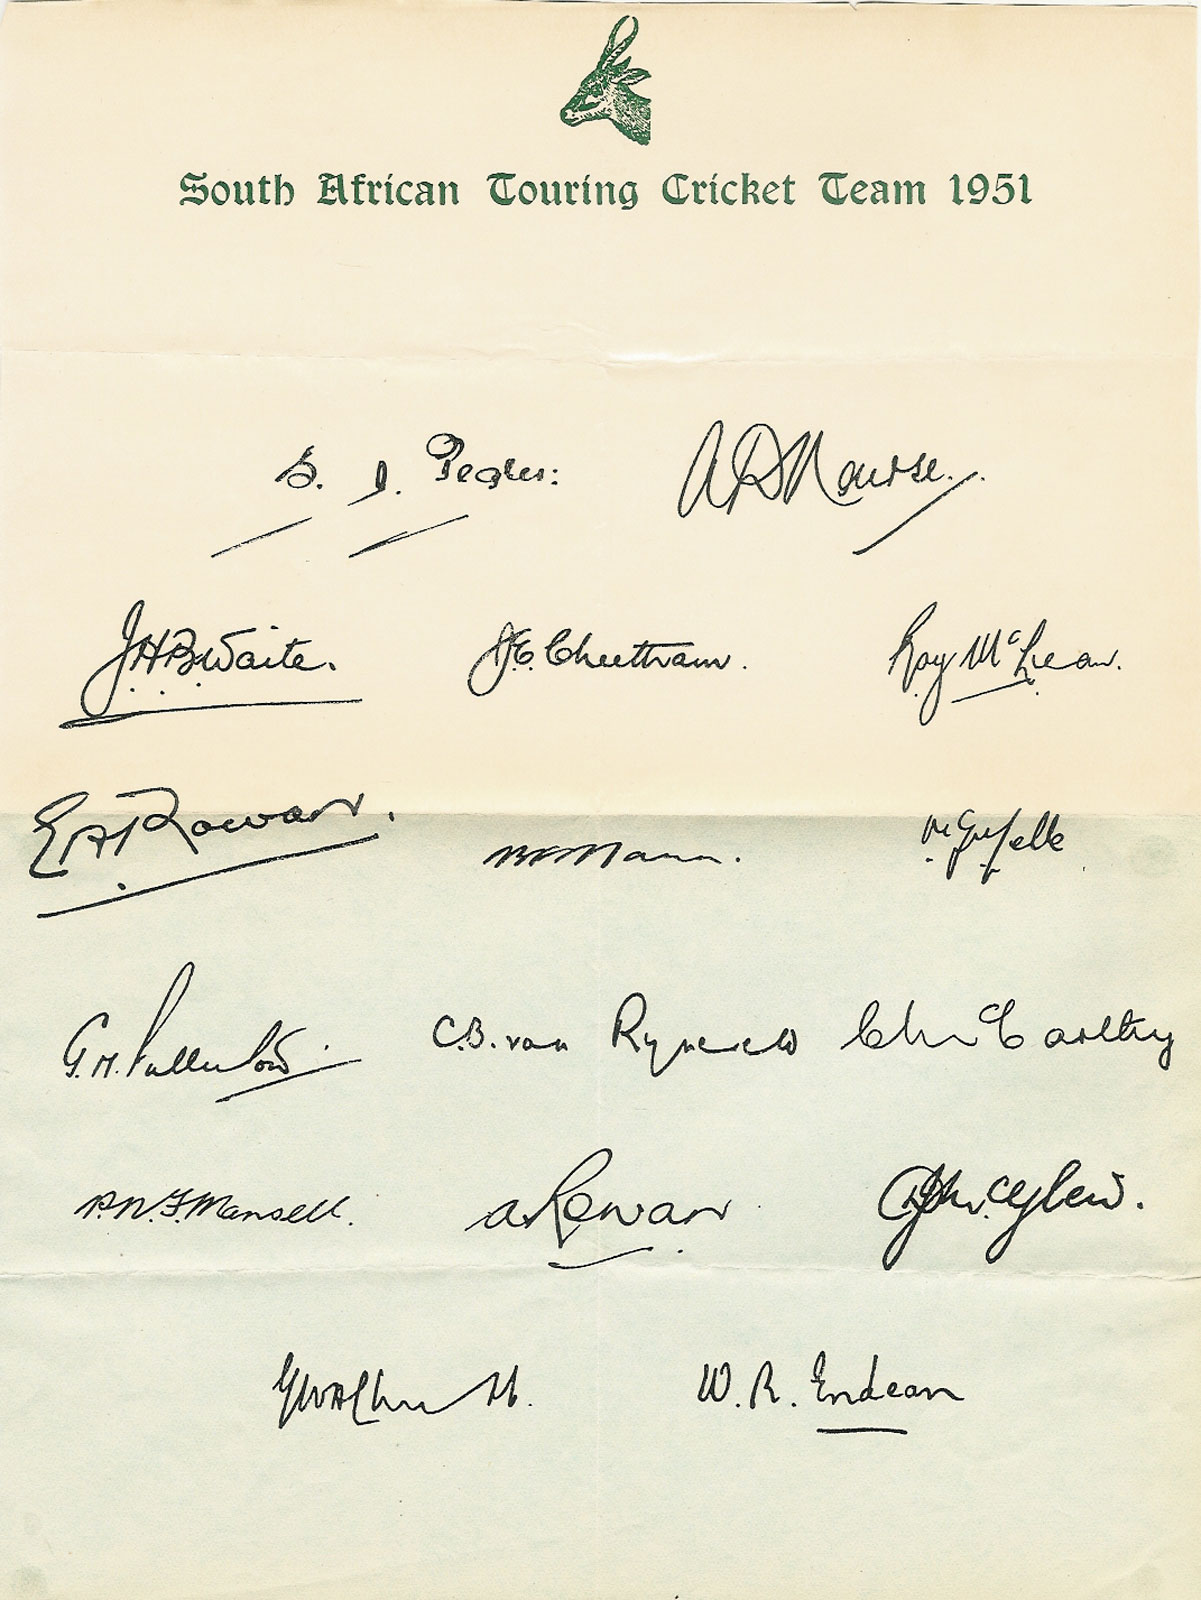 South African Touring Cricket Team 1951
S. J. Pegler: A D Nourse.
J H B Waite. J. E. Cheetham. Roy McLean.
E A B Rowan. N B F Mann. M. G. Melle
G. M. Fullerton. C.B. van Ryneveld C N McCarthy
P. N. F. Mansell. A Rowan
G W A Chubb. W. R. Endean